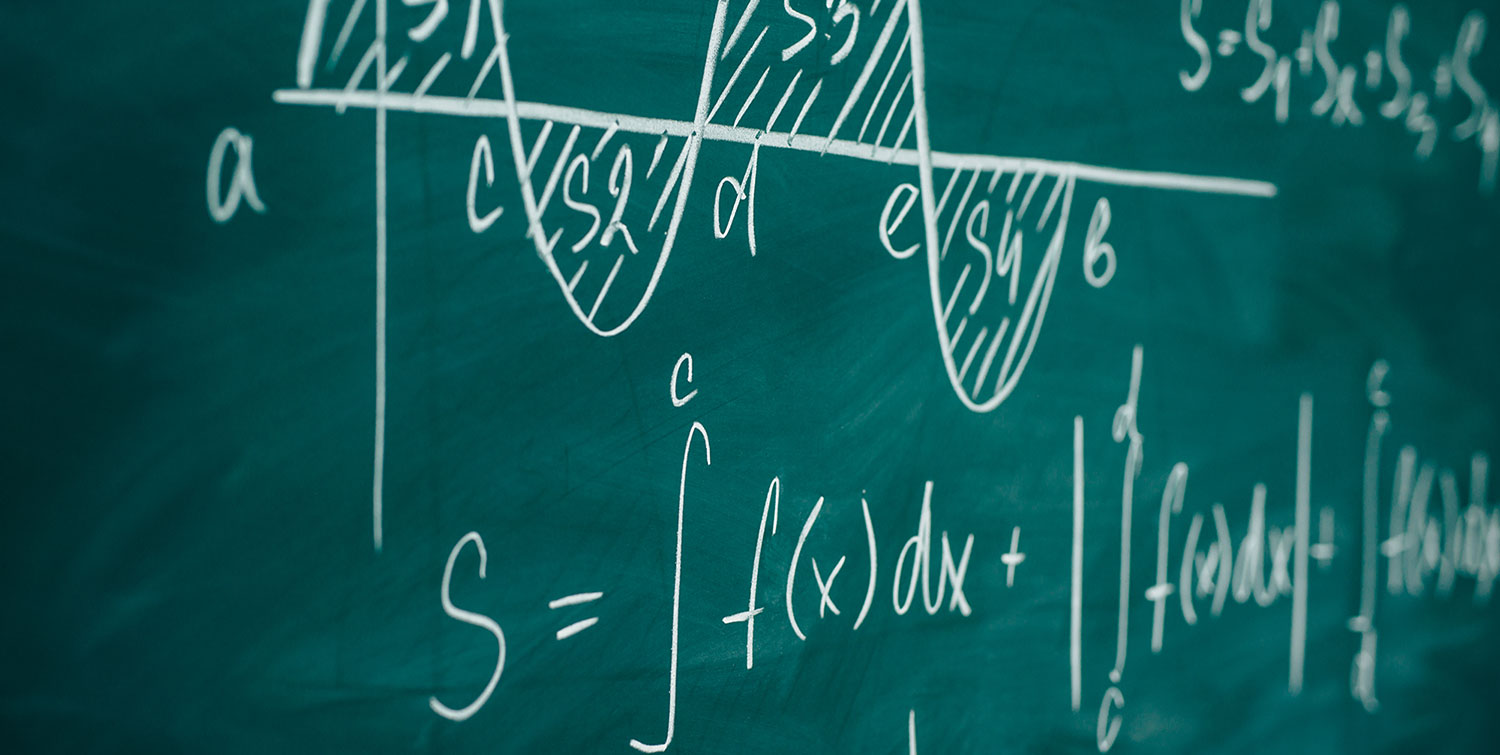 S1 S3 S = S1 + S2 + S3 + S4
a c S2 d e S4 b
S = ∫ c f(x) dx + | ∫ c d f(x) dx | + ∫ d e f(x) dx